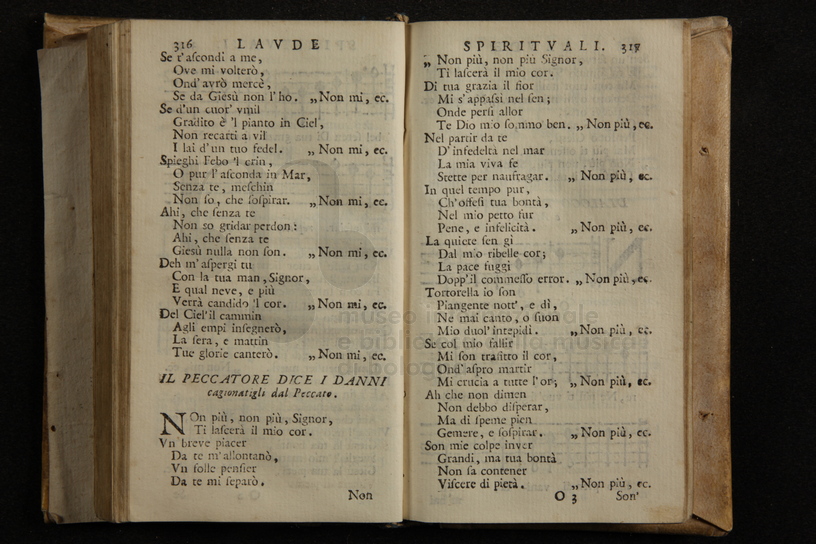 316 LAVDE
Se t'ascondi a me,
Ove mi volterò,
Ond' avrò mercè,
Se da Giesù non l'ho. „Non mi, ec.
Se d'un cuor' vmil
Gradito è 'l pianto in Ciel',
Non recarti a vil
I lai d'un tuo fedel. „Non mi, ec.
Spieghi Febo 'l crin,
O pur l'asconda in Mar,
Senza te, meschin
Non so, che sospirar. „Non mi, ec.
Ahi, che senza te
Non so gridar perdon:
Ahi, che senza te
Giesù nulla non son. „Non mi, ec.
Deh m'aspergi tu
Con la tua man, Signor,
E qual neve, e più
Verrà candido 'l cor. „Non mi, ec.
Del Ciel' il cammin
Agli empi insegnerò,
La sera, e mattin
Tue glorie canterò. „Non mi, ec.
IL PECCATORE DICE I DANNI
cagionatigli dal Peccato.
NOn più, non più, Signor,
Ti lascerà il mio cor.
Vn breve piacer
Da te m'allontanò,
Vn folle pensier
Da te mi separò.
Non
SPIRITVALI. 317
„ Non più, non più Signor,
Ti lascerà il mio cor.
Di tua grazia il fior
Mi s'appassì nel sen;
Onde persi allor
Te Dio mio sommo ben. „Non più, ec.
Nel partir da te
D'infedeltà nel mar
La mia viva fe
Stette per naufragar. „Non più, ec.
In quel tempo pur,
Ch'offesi tua bontà,
Nel mio petto fur
Pene, e infelicità. „Non più, ec.
La quiete sen gì
Dal mio ribelle cor;
La pace fuggì
Dopp'il commesso error. „Non più, ec.
Tortorella io son
Piangente nott', e dì,
Ne mai canto, o suon
Mio duol' intepidì. „Non più, ec.
Se col mio fallir
Mi son trafitto il cor,
Ond' aspro martir
Mi crucia a tutte l'or; „Non più, ec.
Ah che non dimen
Non debbo disperar,
Ma di speme pien
Gemere, e sospirar. „Non più, ec.
Son mie colpe inver
Grandi, ma tua bontà
Non sa contener
Viscere di pietà. „Non più, ec.
O 3 Son'
museo
e biblio della musica
di bolog